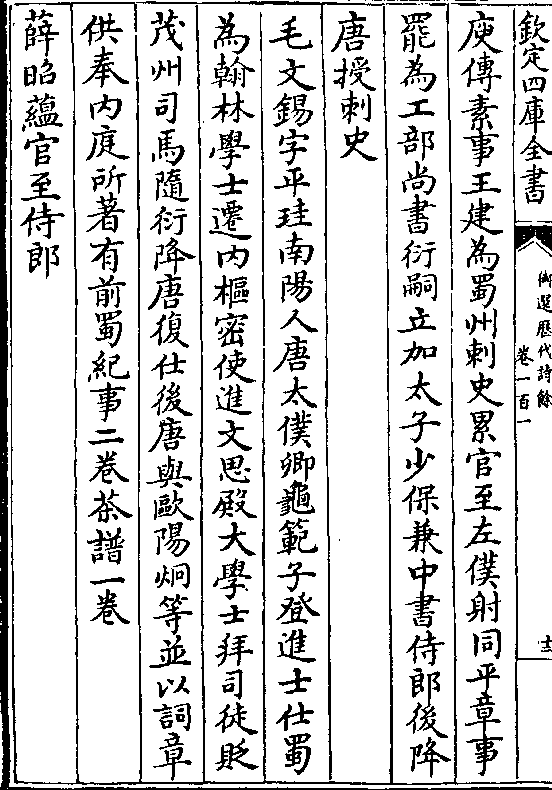 欽定四庫全書
御選歷代詩餘
卷一百一
十一
庾傳素事王建為蜀州刺史累官至左僕射同平章事
罷為工部尚書衍嗣立加太子少保兼中書侍郎後降
唐授刺史
毛文錫字平珪南陽人唐太僕卿龜範子登進士仕蜀
為翰林學士遷内樞密使進文思殿大學士拜司徒貶
茂州司馬隨衍降唐復仕後唐與歐陽炯等並以詞章
供奉内庭所著有前蜀紀事二卷茶譜一卷
薛昭蘊官至侍郎